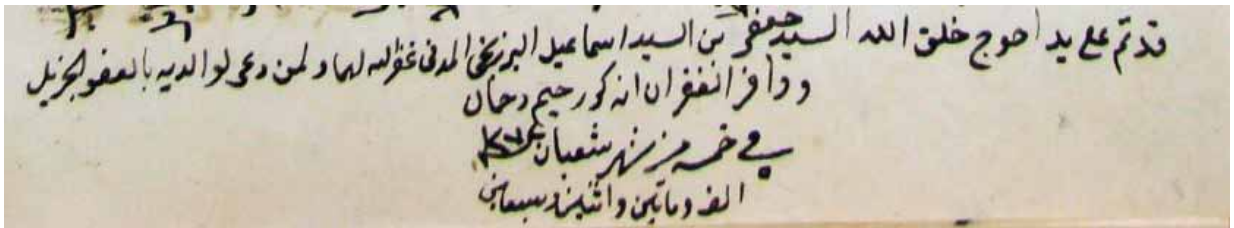 قد تم على يد احوج خلق الله السيد جعفر بن السيد اسماعيل البرزنجي المدني غفر الله لهما ولمن دعى لوالديه بالعفو الجزيل
ووافر الغفران انه كريم رحيم رحمان
في خمسه من شهر شعبان
الف وماتين واثنين وسبعين